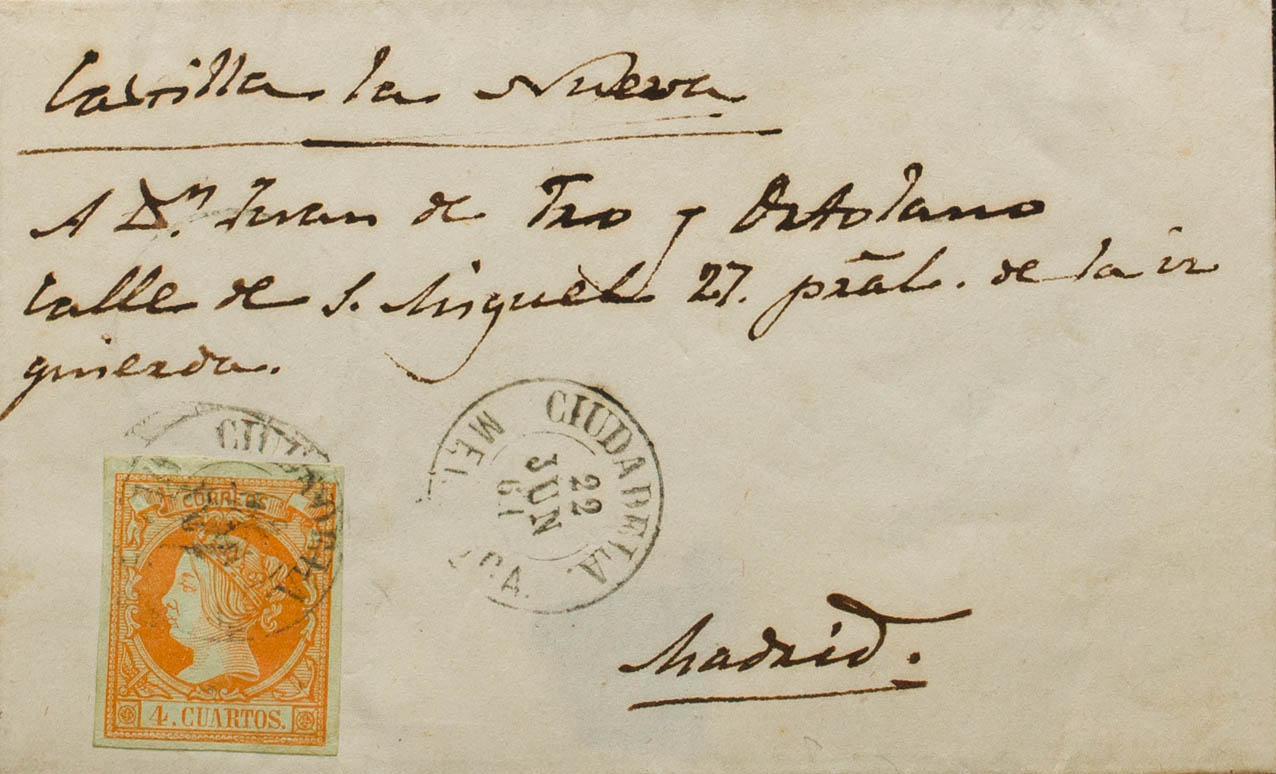 Castilla la Nueva
A Dⁿ. Juan de Tro y Ortolano
Calle de S. Miguel 27. pral. de la iz
quierda.
CIUDADELA
22
JUN
61
CORREOS
4. CUARTOS.
Madrid.